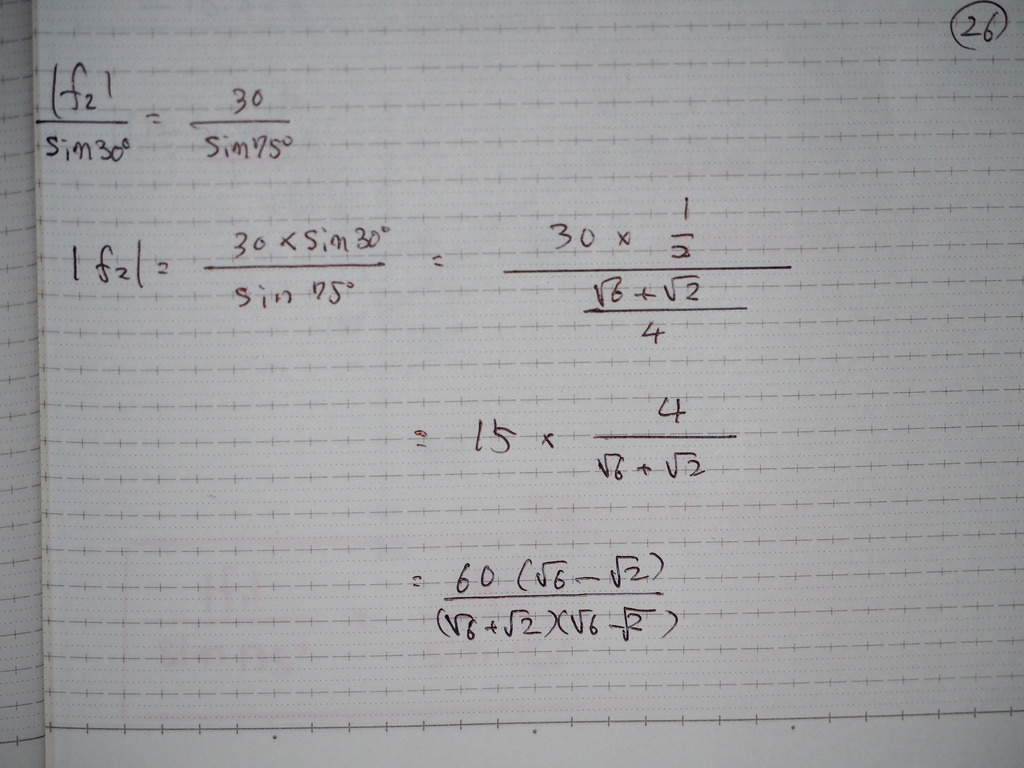 26
|f₂|/sin30° = 30/sin75°
|f₂| = (30 × sin30°)/(sin 75°) = (30 × 1/2)/((√6 + √2)/4)
= 15 × 4/(√6 + √2)
= 60 (√6 − √2)/((√6 + √2)(√6 − √2))